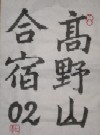 高野山
合宿02